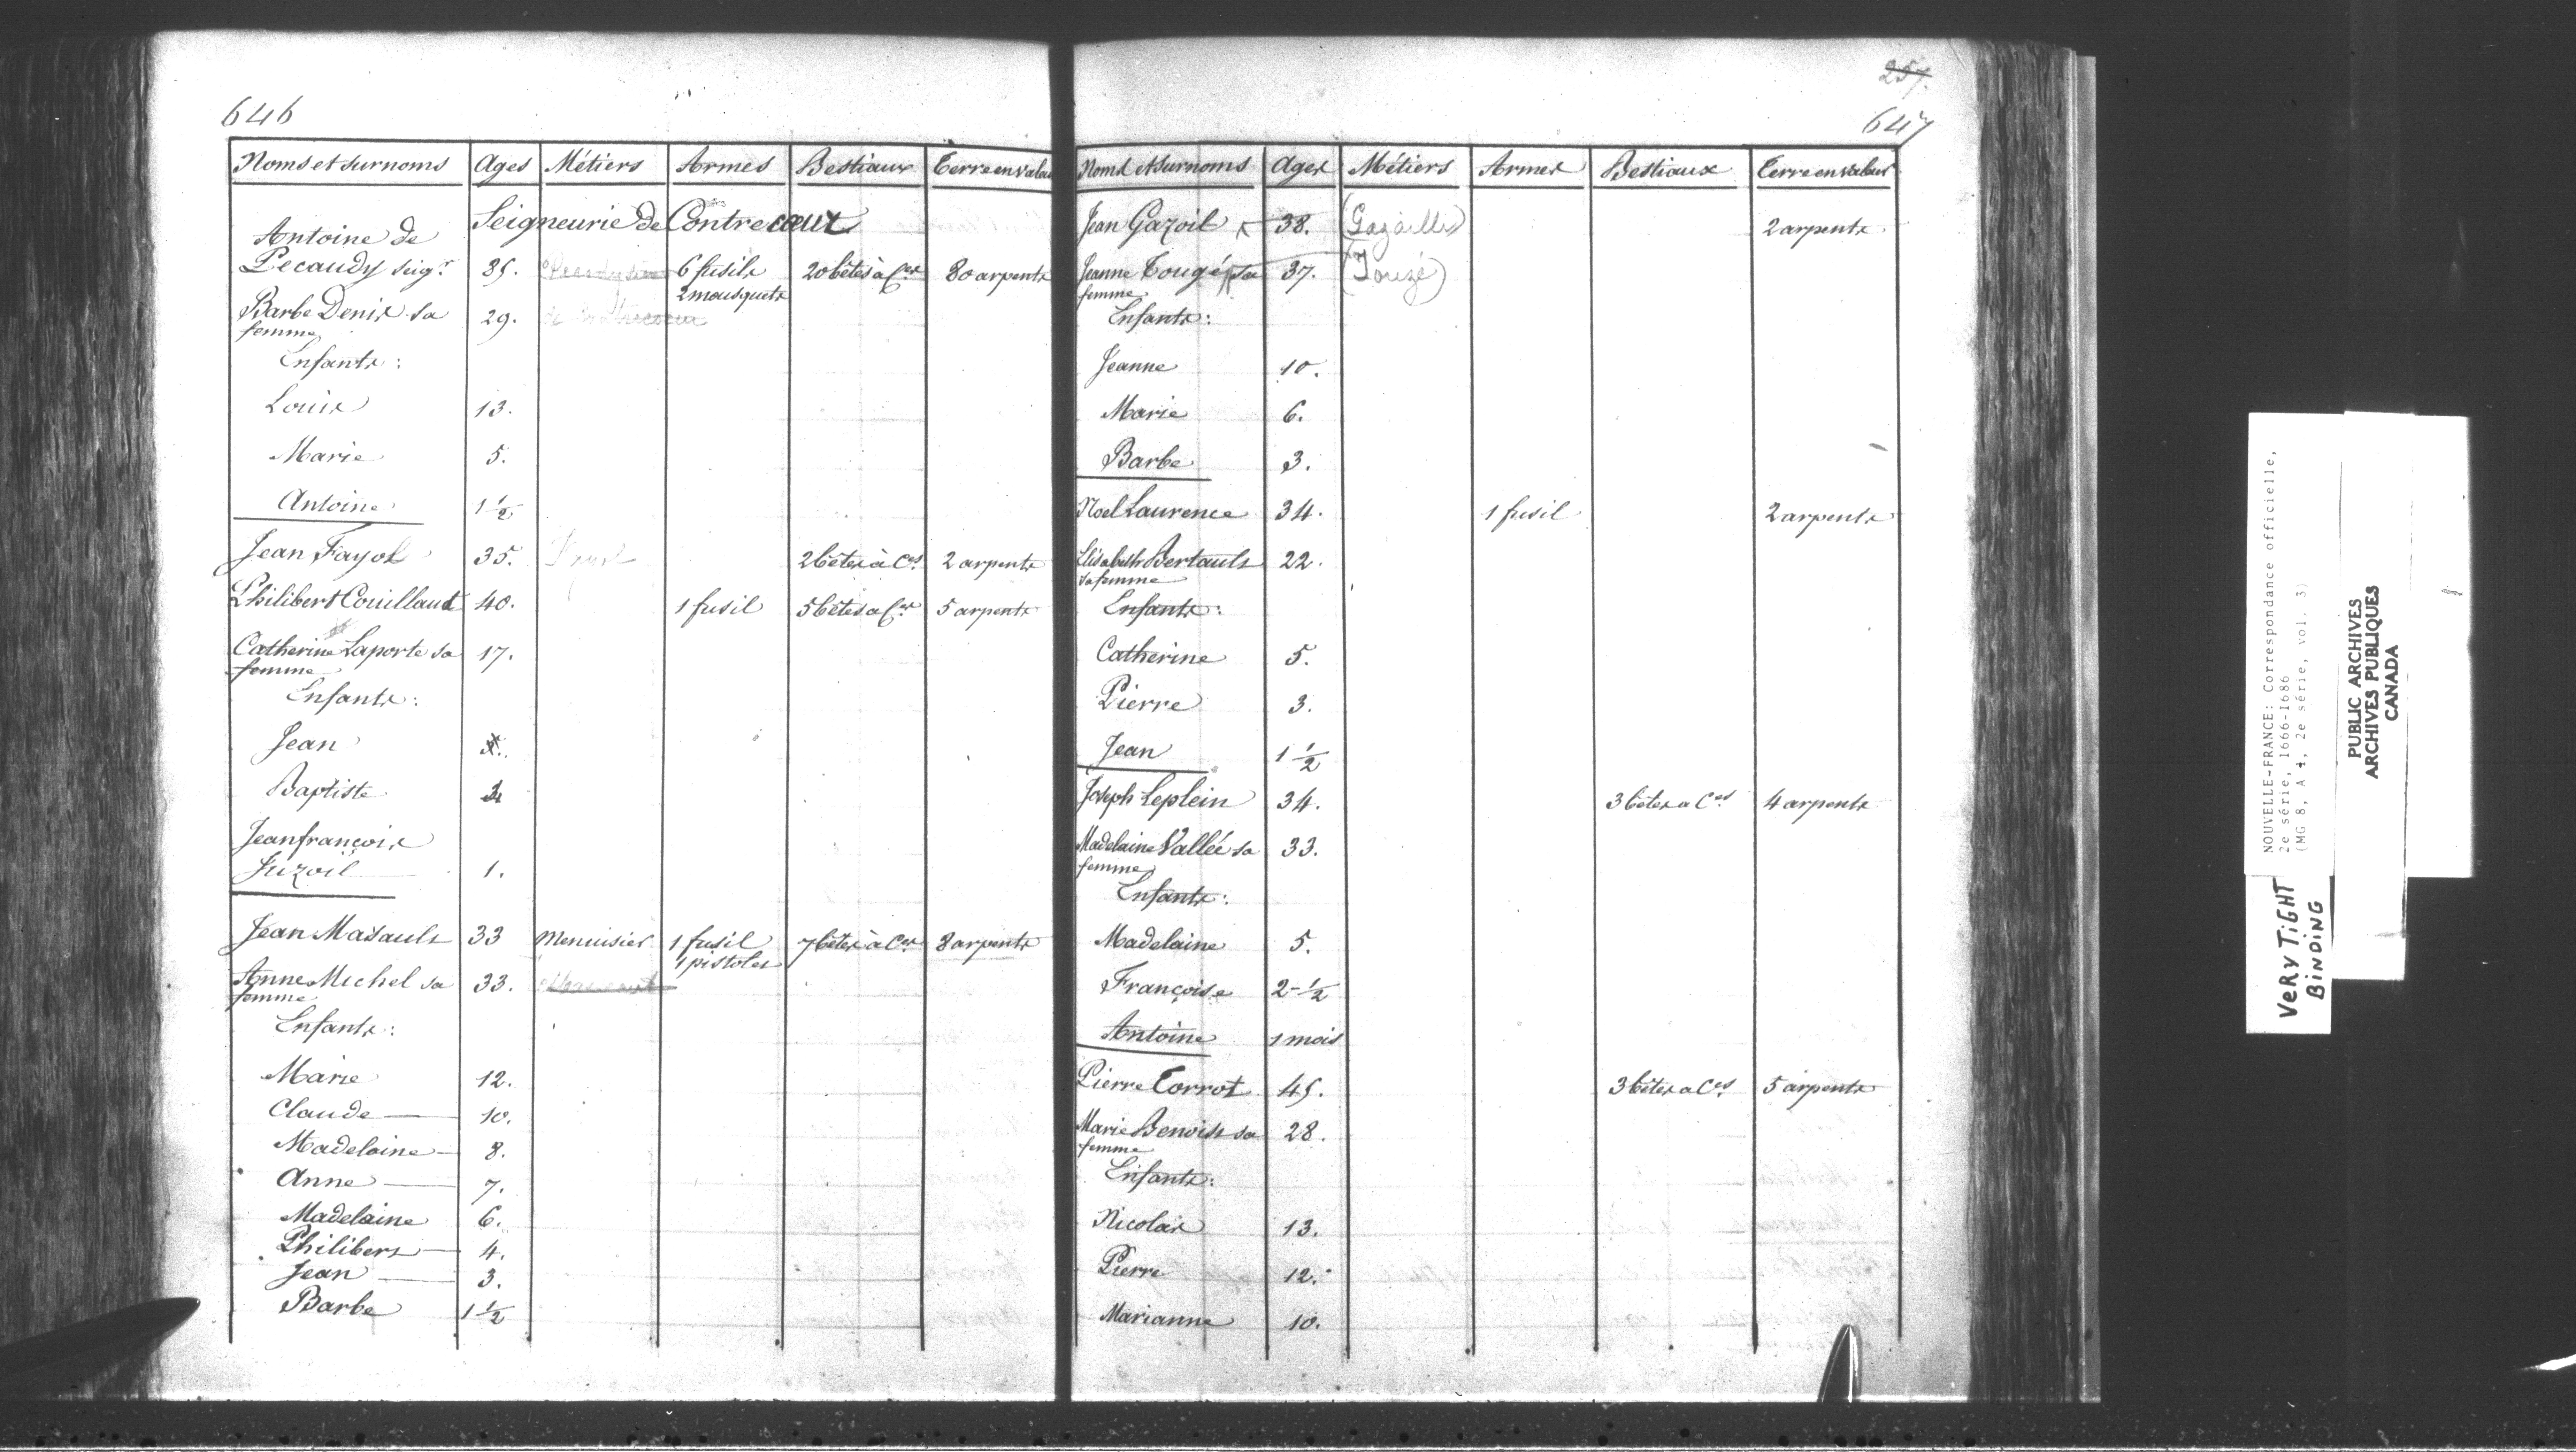 646
Noms et surnoms Ages Métiers Armes Bestiaux Terre en valeur
Seigneurie de Contrecoeur
Antoine de
Pecaudy seigr. 85. 6 fusils 20 bêtes à Ces 80 arpents
2 mousquets
Barbe Denis sa 29.
femme
Enfants:
Louis 13.
Marie 5.
Antoine 1 1/2
Jean Fayol 35. 2 bêtes à Ces 2 arpents
Philibert Couillaud 40. 1 fusil 5 bêtes a Ces 5 arpents
Catherine Laporte sa 17.
femme
Enfants:
Jean
Baptiste
Jean françois
Juzoil 1.
Jean Masault 33 Menuisier 1 fusil 7 bêtes à Ces 8 arpents
1 pistolet
Anne Michel sa 33.
femme
Enfants:
Marie 12.
Claude 10.
Madelaine 8.
Anne 7.
Madelaine 6.
Philibert 4.
Jean 3.
Barbe 1 1/2
257.
647
Noms et surnoms Ages Métiers Armes Bestiaux Terre en valeur
Jean Gazoil x 38. (Gazaille) 2 arpents
Jeanne Tougé sa 37. (Jouzé)
femme
Enfants:
Jeanne 10.
Marie 6.
Barbe 3.
Noel Laurence 34. 1 fusil 2 arpents
Elisabeth Bertault 22.
sa femme
Enfants:
Catherine 5.
Pierre 3.
Jean 1 1/2
Joseph Leplein 34. 3 bêtes a Ces 4 arpents
Madelaine Vallée sa 33.
femme
Enfants:
Madelaine 5.
Françoise 2-1/2
Antoine 1 mois
Pierre Corrot 45. 3 bêtes a Ces 5 arpents
Marie Benoist sa 28.
femme
Enfants:
Nicolas 13.
Pierre 12.
Marianne 10.
NOUVELLE-FRANCE: Correspondance officielle,
2e série, 1666-1686
(MG 8, A 1, 2e série, vol. 3)
VERY TIGHT
BINDING
PUBLIC ARCHIVES
ARCHIVES PUBLIQUES
CANADA